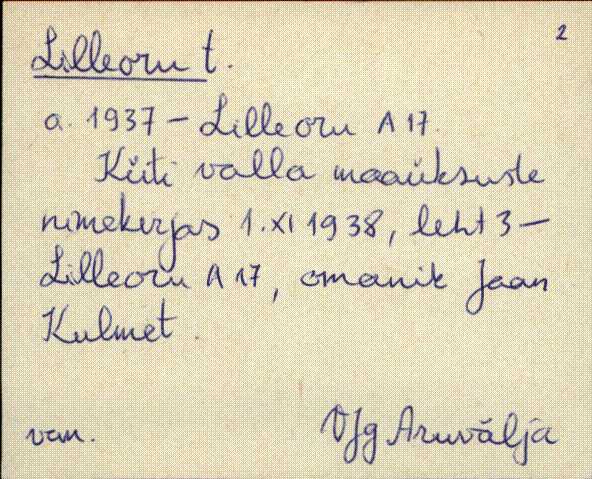 2
Lilleoru t.
a. 1937 – Lilleoru A 17.
Küti valla maaüksuste
nimekirjas 1.XI 1938, leht 3 –
Lilleoru A 17, omanik Jaan
Kulmet.
van. VJg Aruvälja